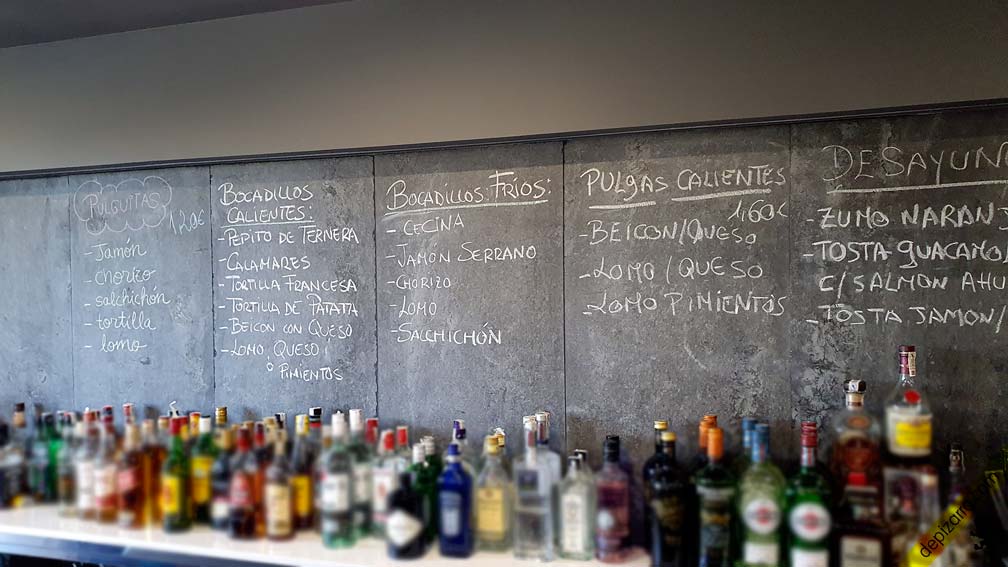 PULGUITAS
1,20€
- Jamón
- chorizo
- salchichón
- tortilla
- lomo
BOCADILLOS
CALIENTES:
- PEPITO DE TERNERA
- CALAMARES
- TORTILLA FRANCESA
- TORTILLA DE PATATA
- BEICON CON QUESO
- LOMO, QUESO
ó PIMIENTOS
BOCADILLOS: FRÍOS:
- CECINA
- JAMÓN SERRANO
- CHORIZO
- LOMO
- SALCHICHÓN
PULGAS CALIENTES
1,60€
- BEICON/QUESO
- LOMO/QUESO
- LOMO PIMIENTOS
DESAYUN
- ZUMO NARAN
- TOSTA GUACAMO
C/SALMON AHU
- TOSTA JAMON/